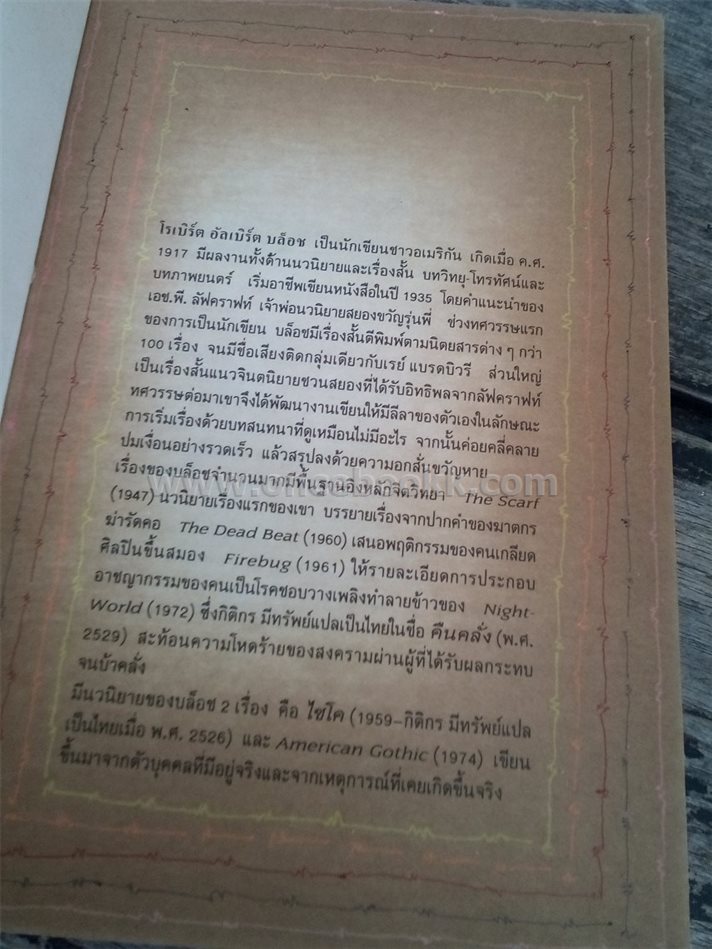 โรเบิร์ต อัลเบิร์ต บล็อช เป็นนักเขียนชาวอเมริกัน เกิดเมื่อ ค.ศ.
1917 มีผลงานทั้งด้านนวนิยายและเรื่องสั้น บทวิทยุ-โทรทัศน์และ
บทภาพยนตร์ เริ่มอาชีพเขียนหนังสือในปี 1935 โดยคำแนะนำของ
เอช.พี. ลัฟคราฟท์ เจ้าพ่อนวนิยายสยองขวัญรุ่นพี่ ช่วงทศวรรษแรก
ของการเป็นนักเขียน บล็อชมีเรื่องสั้นตีพิมพ์ตามนิตยสารต่าง ๆ กว่า
100 เรื่อง จนมีชื่อเสียงติดกลุ่มเดียวกับเรย์ แบรดบิวรี ส่วนใหญ่
เป็นเรื่องสั้นแนวจินตนิยายชวนสยองที่ได้รับอิทธิพลจากลัฟคราฟท์
ทศวรรษต่อมาเขาจึงได้พัฒนางานเขียนให้มีลีลาของตัวเองในลักษณะ
การเริ่มเรื่องด้วยบทสนทนาที่ดูเหมือนไม่มีอะไร จากนั้นค่อยคลี่คลาย
ปมเงื่อนอย่างรวดเร็ว แล้วสรุปลงด้วยความอกสั่นขวัญหาย
เรื่องของบล็อชจำนวนมากมีพื้นฐานอิงหลักจิตวิทยา The Scarf
(1947) นวนิยายเรื่องแรกของเขา บรรยายเรื่องจากปากคำของฆาตกร
ฆ่ารัดคอ The Dead Beat (1960) เสนอพฤติกรรมของคนเกลียด
ศิลปินขึ้นสมอง Firebug (1961) ให้รายละเอียดการประกอบ
อาชญากรรมของคนเป็นโรคชอบวางเพลิงทำลายข้าวของ Night-
World (1972) ซึ่งกิติกร มีทรัพย์แปลเป็นไทยในชื่อ คืนคลั่ง (พ.ศ.
2529) สะท้อนความโหดร้ายของสงครามผ่านผู้ที่ได้รับผลกระทบ
จนบ้าคลั่ง
มีนวนิยายของบล็อช 2 เรื่อง คือ ไซโค (1959-กิติกร มีทรัพย์แปล
เป็นไทยเมื่อ พ.ศ. 2526) และ American Gothic (1974) เขียน
ขึ้นมาจากตัวบุคคลที่มีอยู่จริงและจากเหตุการณ์ที่เคยเกิดขึ้นจริง